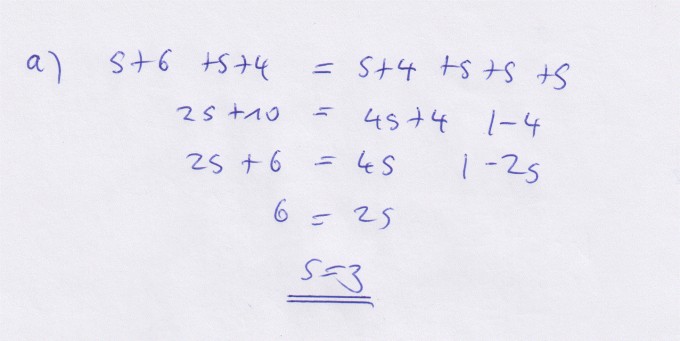 a) s+6 +s+4 = s+4 +s +s +s
2s +10 = 4s+4 |-4
2s + 6 = 4s |-2s
6 = 2s
s=3